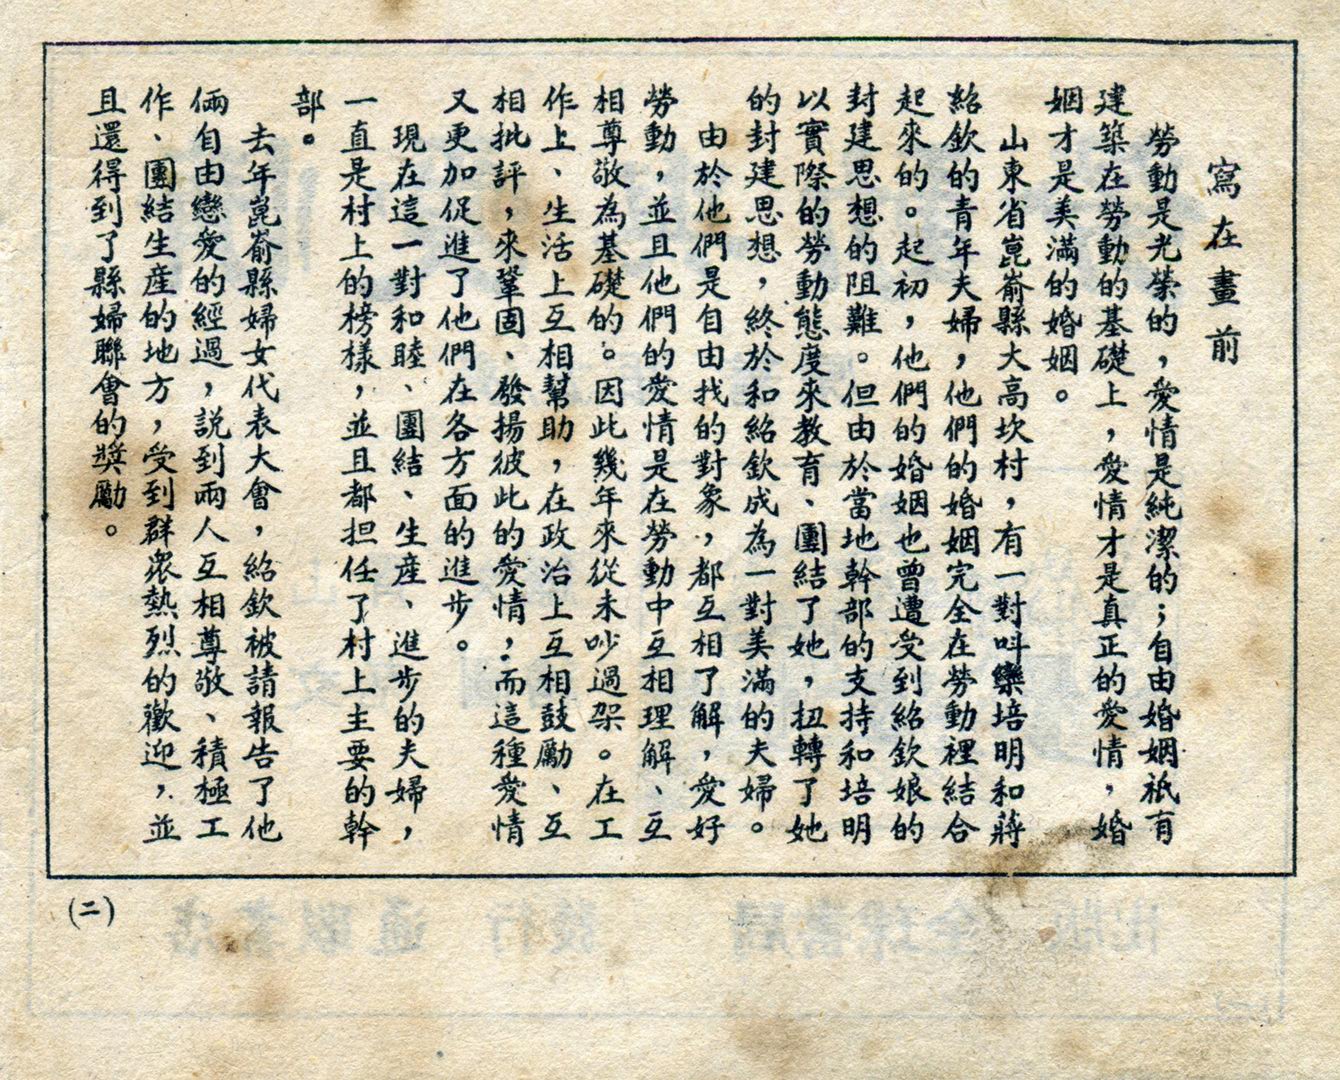 寫在畫前
勞動是光榮的，愛情是純潔的；自由婚姻祇有
建築在勞動的基礎上，愛情才是真正的愛情，婚
姻才是美滿的婚姻。
山東省崑嵛縣大高坎村，有一對呌欒培明和蔣
紹欽的青年夫婦，他們的婚姻完全在勞動裡結合
起來的。起初，他們的婚姻也曾遭受到紹欽娘的
封建思想的阻難。但由於當地幹部的支持和培明
以實際的勞動態度來教育、團結了她，扭轉了她
的封建思想，終於和紹欽成為一對美滿的夫婦。
由於他們是自由找的對象，都互相了解，愛好
勞動，並且他們的愛情是在勞動中互相理解、互
相尊敬為基礎的。因此幾年來從未吵過架。在工
作上、生活上互相幫助，在政治上互相鼓勵、互
相批評，來鞏固、發揚彼此的愛情，而這種愛情
又更加促進了他們在各方面的進步。
現在這一對和睦、團結、生産、進步的夫婦，
一直是村上的榜樣，並且都担任了村上主要的幹
部。
去年崑嵛縣婦女代表大會，紹欽被請報告了他
倆自由戀愛的經過，説到兩人互相尊敬、積極工
作、團結生産的地方，受到群衆熱烈的歡迎，並
且還得到了縣婦聯會的獎勵。
(二)